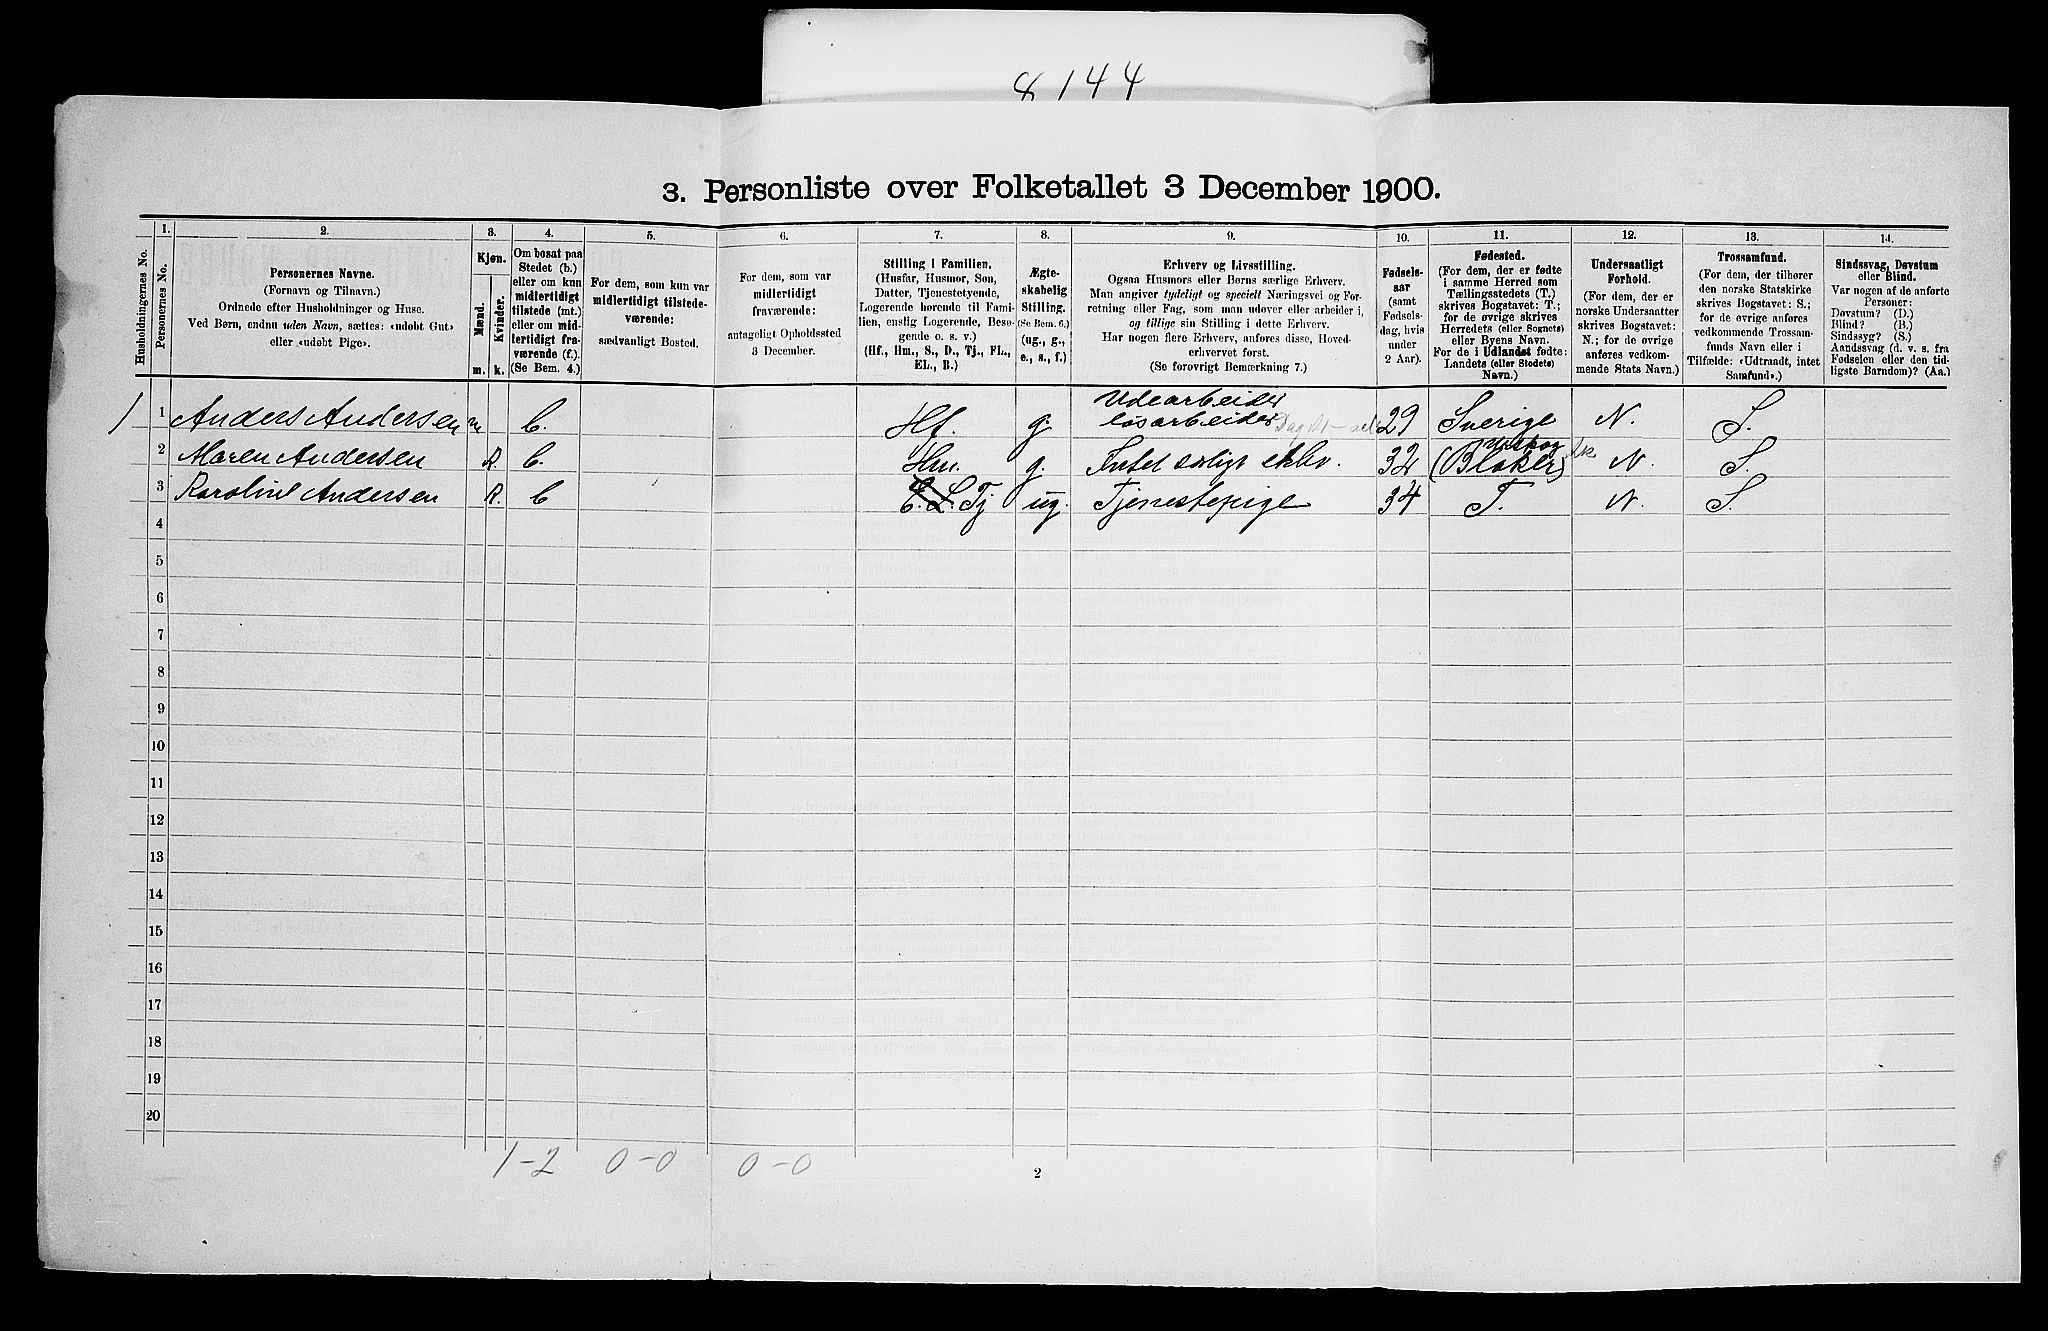 8144
3. Personliste over Folketallet 3 December 1900.
Husholdningernes No.
1.
Personernes No.
2.
Personernes Navne.
(Fornavn og Tilnavn.)
Ordnede efter Husholdninger og Huse.
Ved Børn, endnu uden Navn, sættes: «udøbt Gut»
eller «udøbt Pige».
3.
Kjøn.
Mænd.
Kvinder.
m.
k.
4.
Om bosat paa
Stedet (b.)
eller om kun
midlertidigt
tilstede (mt.)
eller om mid-
lertidigt fra-
værende (f.).
(Se Bem. 4.)
5.
For dem, som kun var
midlertidigt tilstede-
værende:
sædvanligt Bosted.
6.
For dem, som var
midlertidigt
fraværende:
antageligt Opholdssted
3 December.
7.
Stilling i Familien.
(Husfar, Husmor, Søn,
Datter, Tjenestetyende,
Logerende hørende til Fami-
lien, enslig Logerende, Besø-
gende o. s. v.)
(Hf., Hm., S., D., Tj., FL.,
EL., B.)
8.
Ægte-
skabelig
Stilling.
(Se Bem. 6.)
(ug., g.,
e., s., f.)
9.
Erhverv og Livsstilling.
Ogsaa Husmors eller Børns særlige Erhverv.
Man angiver tydeligt og specielt Næringsvei og For-
retning eller Fag, som man udøver eller arbeider i,
og tillige sin Stilling i dette Erhverv.
Har nogen flere Erhverv, anføres disse, Hoved-
erhvervet først.
(Se forøvrigt Bemærkning 7.)
10.
Fødsels-
aar
(samt
Fødsels-
dag, hvis
under
2 Aar).
11.
Fødested.
(For dem, der er fødte
i samme Herred som
Tællingsstedets (T.)
skrives Bogstavet: T.;
for de øvrige skrives
Herredets (eller Sognets)
eller Byens Navn.
For de i Udlandet fødte:
Landets (eller Stedets)
Navn.)
12.
Undersaatligt
Forhold.
(For dem, der er
norske Undersaatter
skrives Bogstavet:
N.; for de øvrige
anføres vedkom-
mende Stats Navn.)
13.
Trossamfund.
(For dem, der tilhører
den norske Statskirke
skrives Bogstavet: S.;
for de øvrige anføres
vedkommende Trossam-
funds Navn eller i
Tilfælde: «Udtraadt, intet
Samfund».)
14.
Sindssvag, Døvstum
eller Blind.
Var nogen af de anførte
Personer:
Døvstum? (D.)
Blind? (B.)
Sindssyg? (S.)
Aandssvag (d. v. s. fra
Fødselen eller den tid-
ligste Barndom)? (Aa.)
Udearbeider
1 1 Anders Andersen m b. Hf. g. løsarbeider 29 Sverige N. S.
2 Maren Andersen k. b. Hm. g. Intet særligt erhv. 32 (Blaker) N. S.
3 Karoline Andersen k. b E. L. Tj ug. Tjenestepige 34 T. N. S.
4
5
6
7
8
9
10
11
12
13
14
15
16
17
18
19
20
1-2 0-0 0-0
2